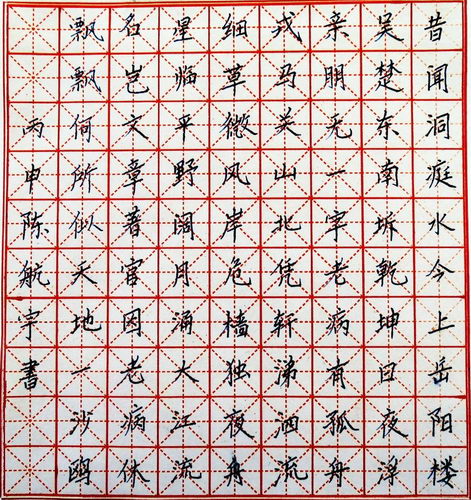 昔闻洞庭水今上岳阳楼
吴楚东南坼乾坤日夜浮
亲朋无一字老病有孤舟
戎马关山北凭轩涕泗流
细草微风岸危樯独夜舟
星临平野阔月涌大江流
名岂文章著官因老病休
飘飘何所似天地一沙鸥
丙申陈航宇书